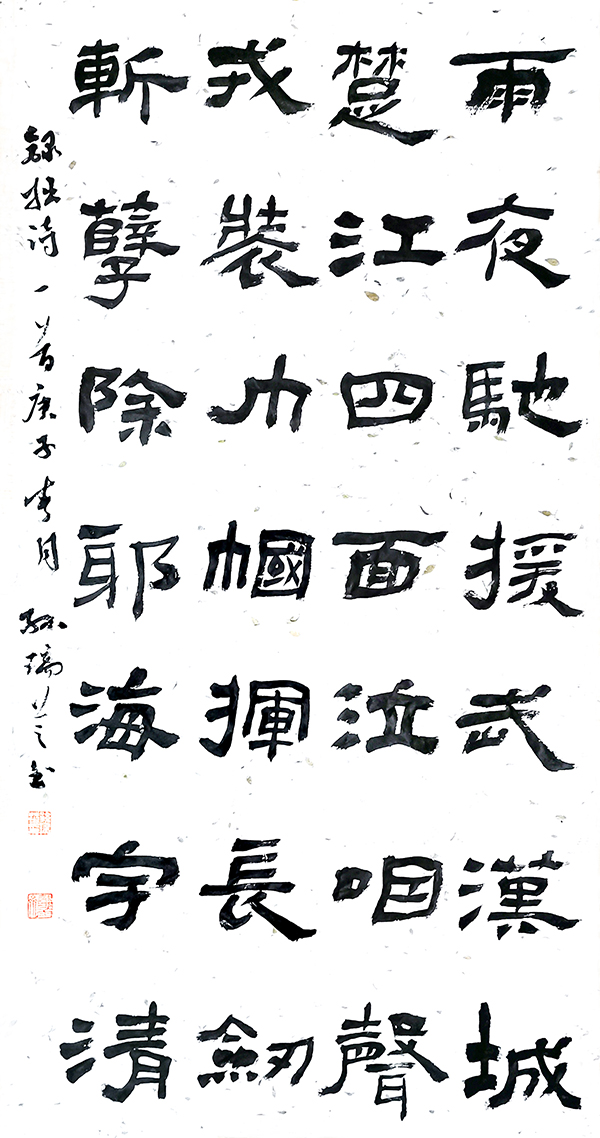 雨夜馳援武漢城
楚江四面泣咽聲
戎裝巾幗揮長劒
斬孽除邪海宇清
錄拙詩一首庚子春月 孫瑞芝書